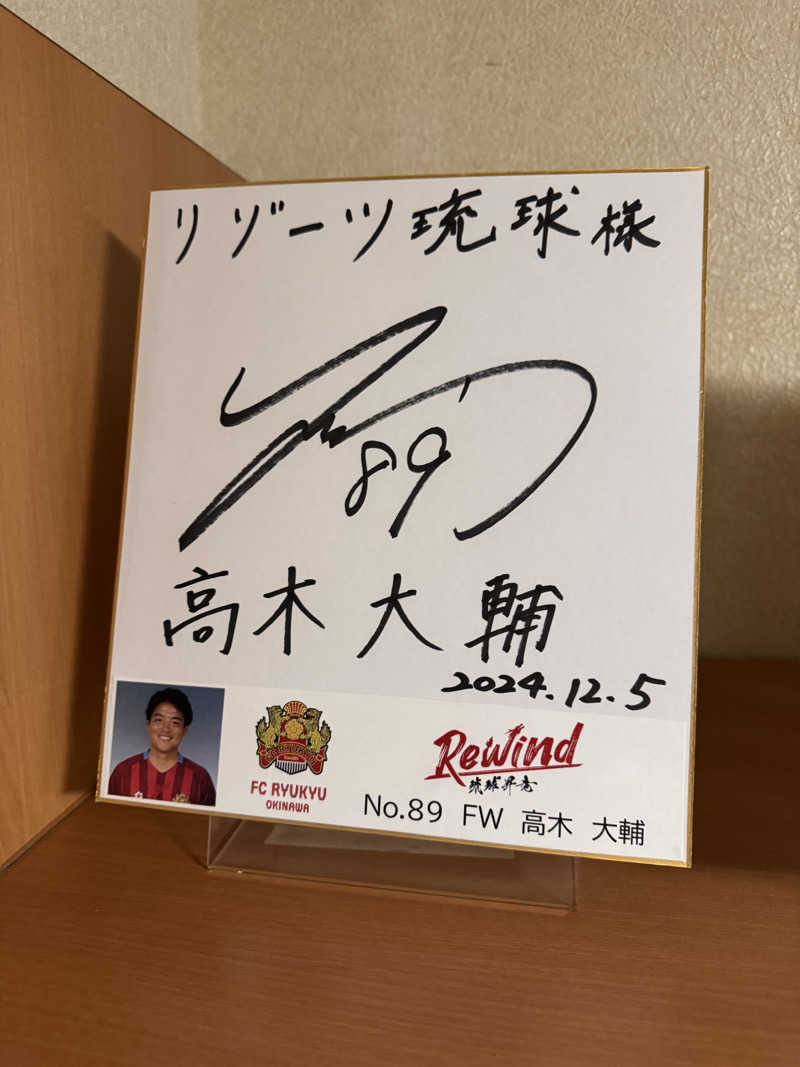 リゾーツ琉球様
89
高木大輔
2024.12.5
FC RYUKYU
OKINAWA
Rewind
琉球昇竜
No.89 FW 高木 大輔